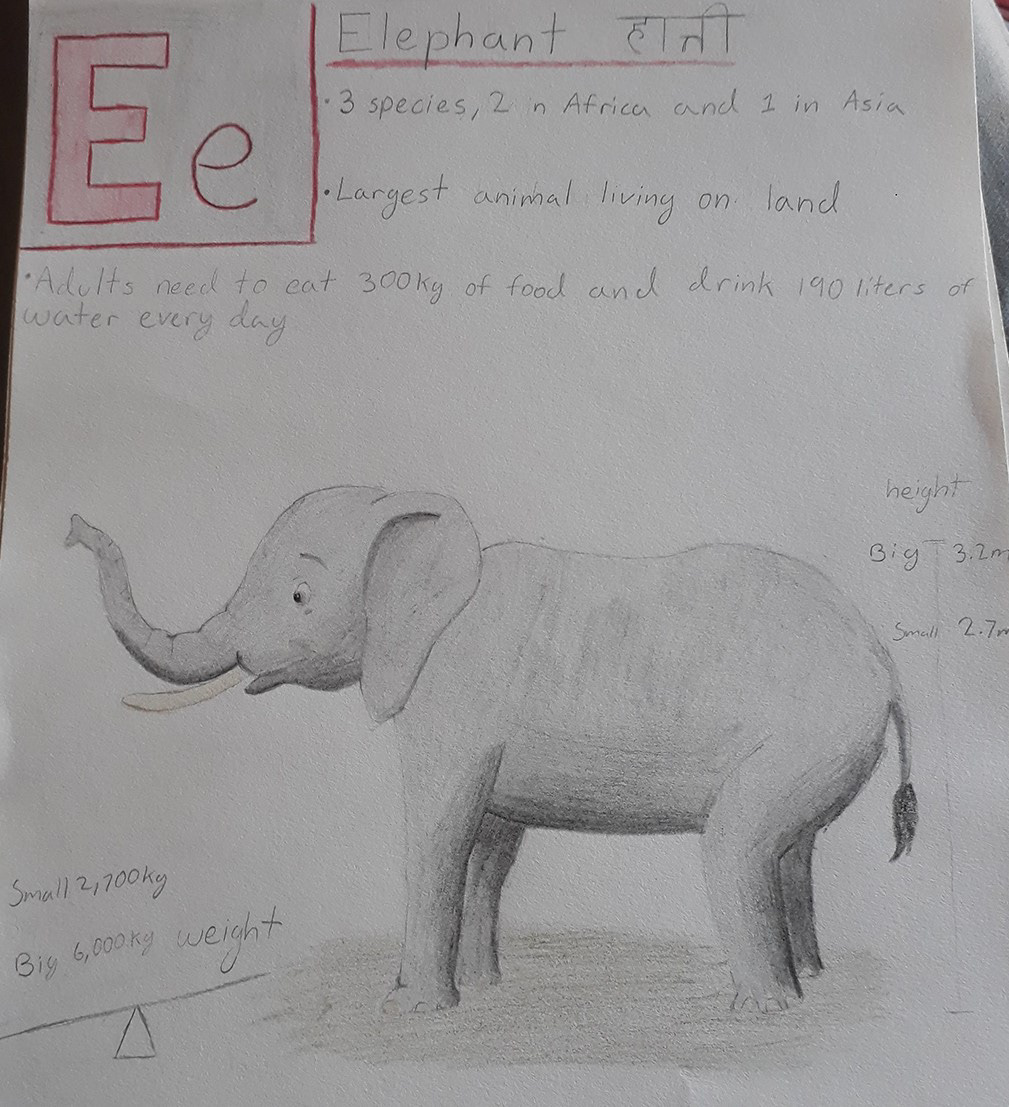 E e
Elephant हात्ती
· 3 species, 2 in Africa and 1 in Asia
· Largest animal living on land
· Adults need to eat 300kg of food and drink 190 liters of
water every day
height
Big 3.2m
Small 2.7m
Small 2,700kg
Big 6,000kg weight